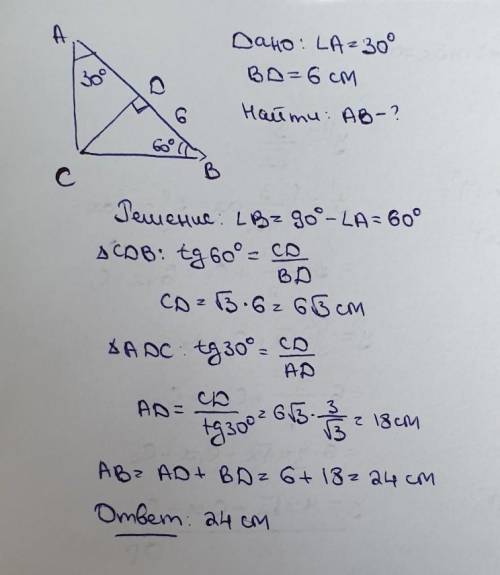 A
30°
D
6
60°
C
B
Дано: ∟A = 30°
BD = 6 см
Найти: AB - ?
Решение: ∟B = 90° - ∟A = 60°
ΔCDB: tg 60° = CD/BD
CD = √3 · 6 = 6√3 см
ΔADC: tg 30° = CD/AD
AD = CD/tg30° = 6√3 · 3/√3 = 18 см
AB = AD + BD = 6 + 18 = 24 см
Ответ: 24 см